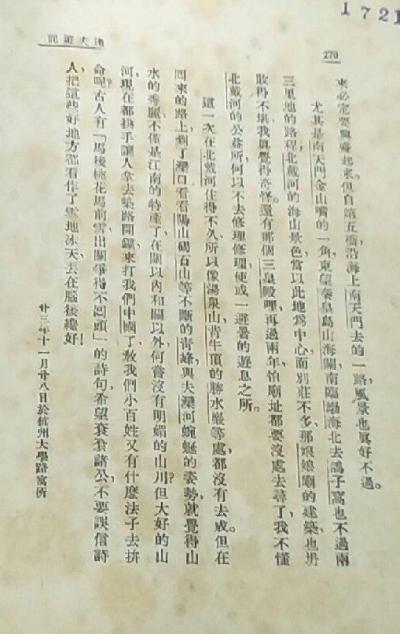 1721
達夫遊記
270
來必定要興奮起來。但自第五橋沿海上南天門去的一路風景也眞好不過。
尤其是南天門金山嘴的一角東望秦皇島山海關南臨渤海北去鴿子窩也不過兩
三里地的路程北戴河的海山景色當以此地爲中心而別莊不多那娘娘廟的建築也坍
敗得不堪我眞覺得奇怪。還有那個三皇殿哩再過兩年怕廟址都要沒處去尋了我不懂
北戴河的公益所何以不去修理修理使成一避暑的遊息之所。
這一次在北戴河住得不久所以像湯泉山背牛頂的勝水巖等處都沒有去成但在
回來的路上到了灤口看看陽山碣石山等不斷的青峰與夫灤河蜿蜒的姿勢就覺得山
水的秀麗不僅是江南的特產了在關以內和關以外何嘗沒有明媚的山川但大好的山
河現在都拱手讓人拿去築路開鑛來打我們中國了敎我們小百姓又有什麽法子去拚
命呢?古人有「馬後桃花馬前雪出關爭得不囘頭」的詩句希望衮衮諸公不要誤信詩
人把這些好地方都看作了雪地冰天丟在腦後纔好!
廿三年十一月廿八日於杭州大學路寓所